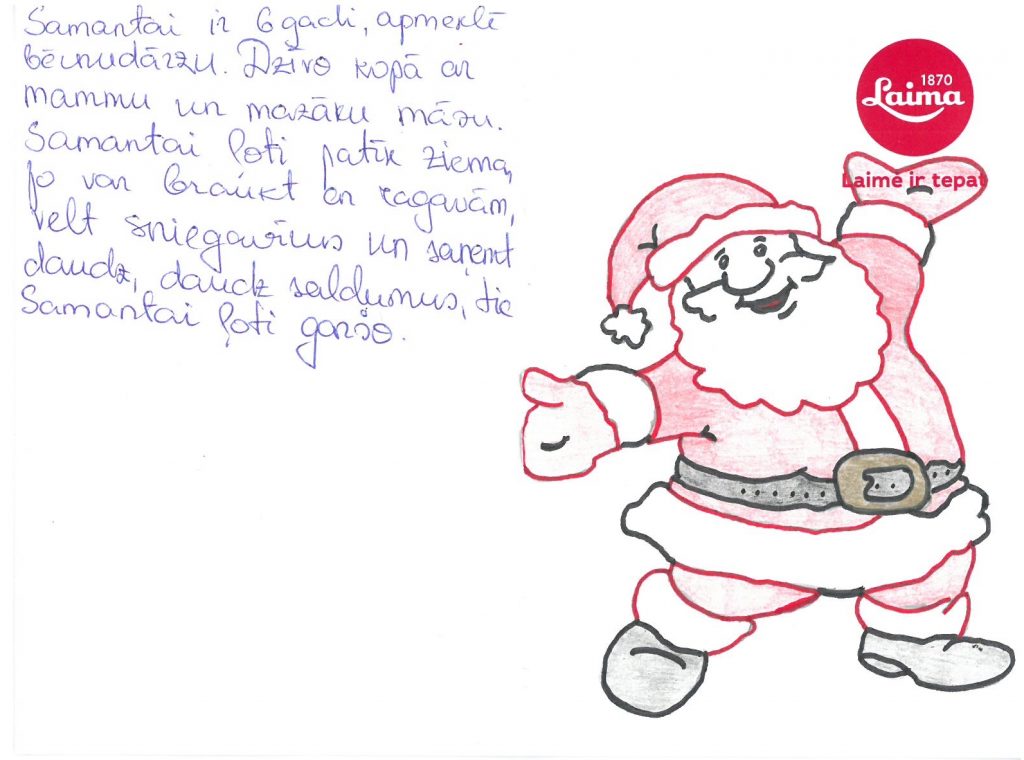 Samantai ir 6 gadi, apmeklē
bērnudārzu. Dzīvo kopā ar
mammu un mazāku māsu.
Samantai ļoti patīk ziema,
jo var braukt an ragavām,
velt sniegavīrus un saņemt
daudz, daudz saldumus, tie
Samantai ļoti garšo.
1870
Laima
Laime ir tepat